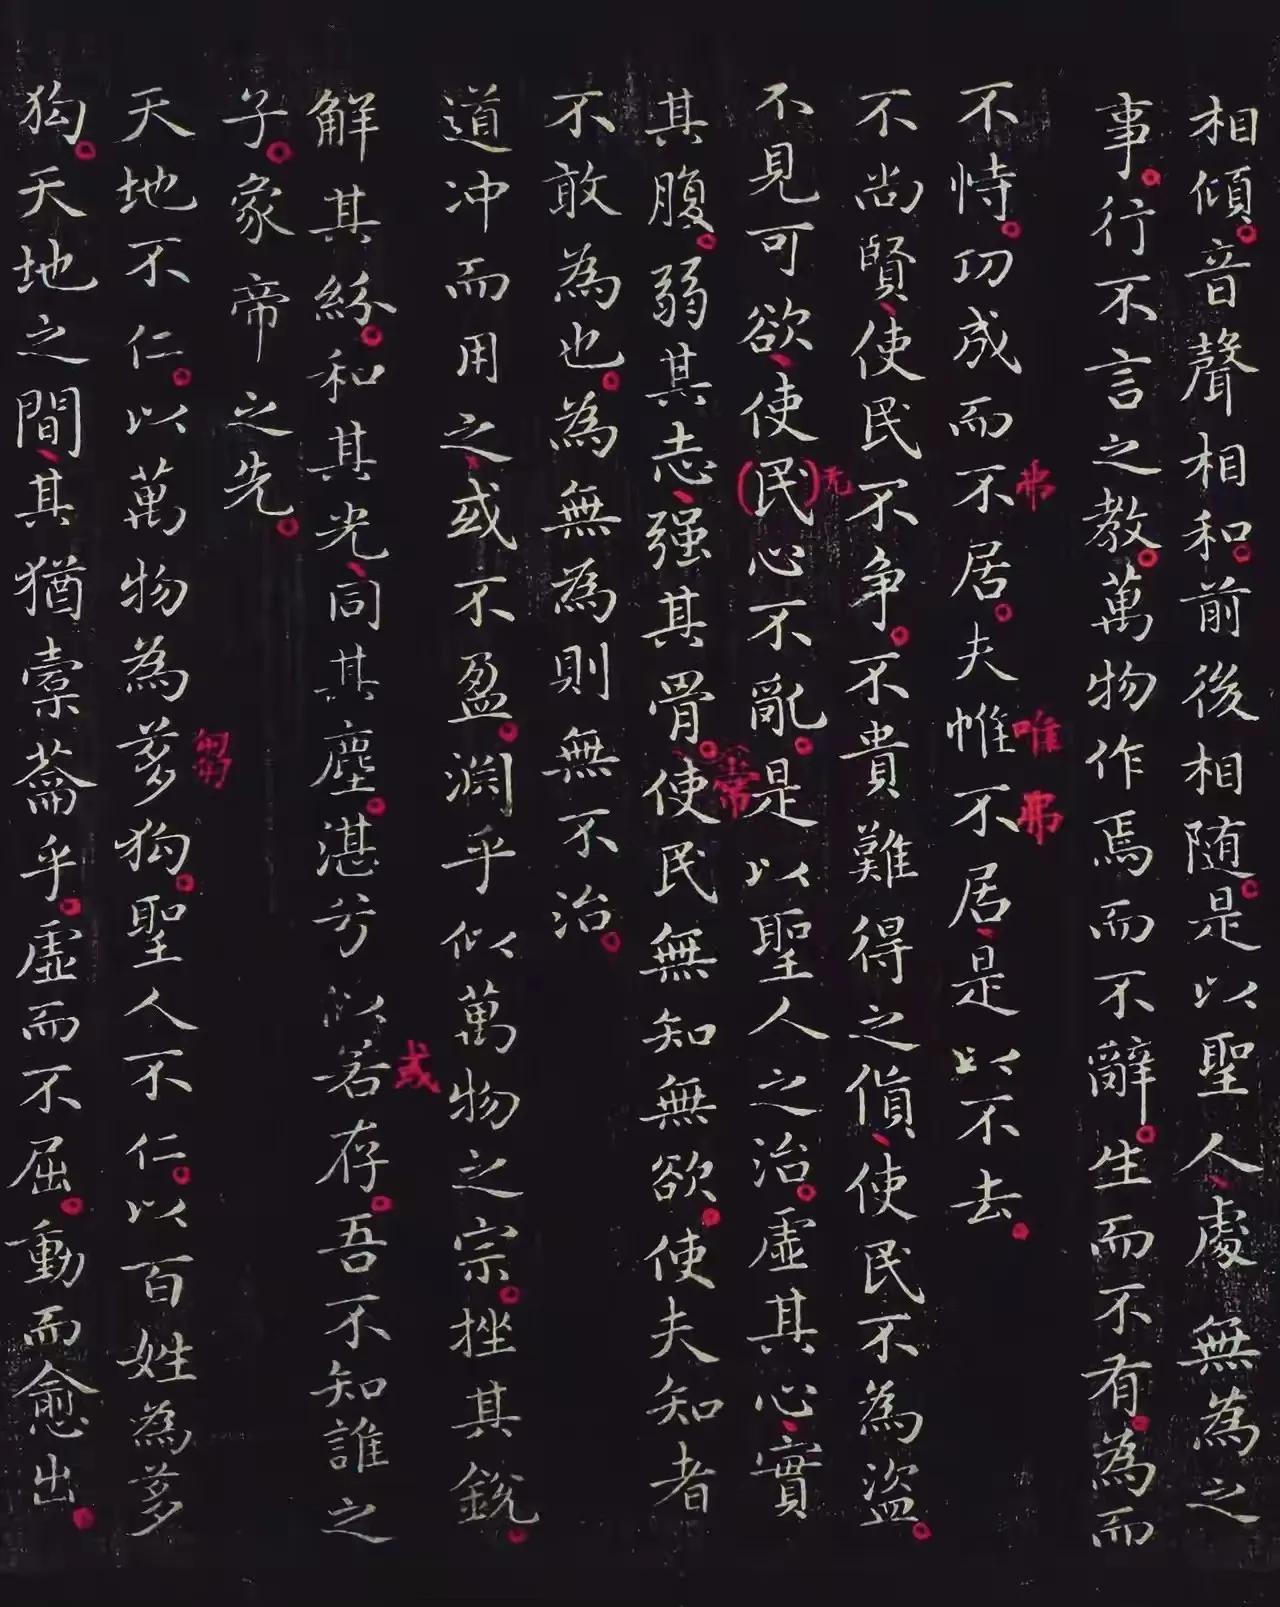 相傾。音聲相和。前後相随。是以聖人、處無為之
事。行不言之教。萬物作焉而不辭。生而不有。為而
不恃。功成而不居。夫惟不居、是以不去。
弗
唯
弗
不尚賢、使民不争。不貴難得之貨、使民不為盗。
不見可欲、使(民)心不亂。是以聖人之治。虛其心、實
无
其腹。弱其志、强其骨。使民無知無欲。使夫知者
常
不敢為也。為無為則無不治。
道冲而用之、或不盈。渊乎似萬物之宗。挫其銳。
解其紛。和其光、同其塵。湛兮似若存。吾不知誰之
或
子。象帝之先。
天地不仁。以萬物為芻狗。聖人不仁。以百姓為芻
芻
狗。天地之間、其猶橐蘥乎。虛而不屈。動而愈出。